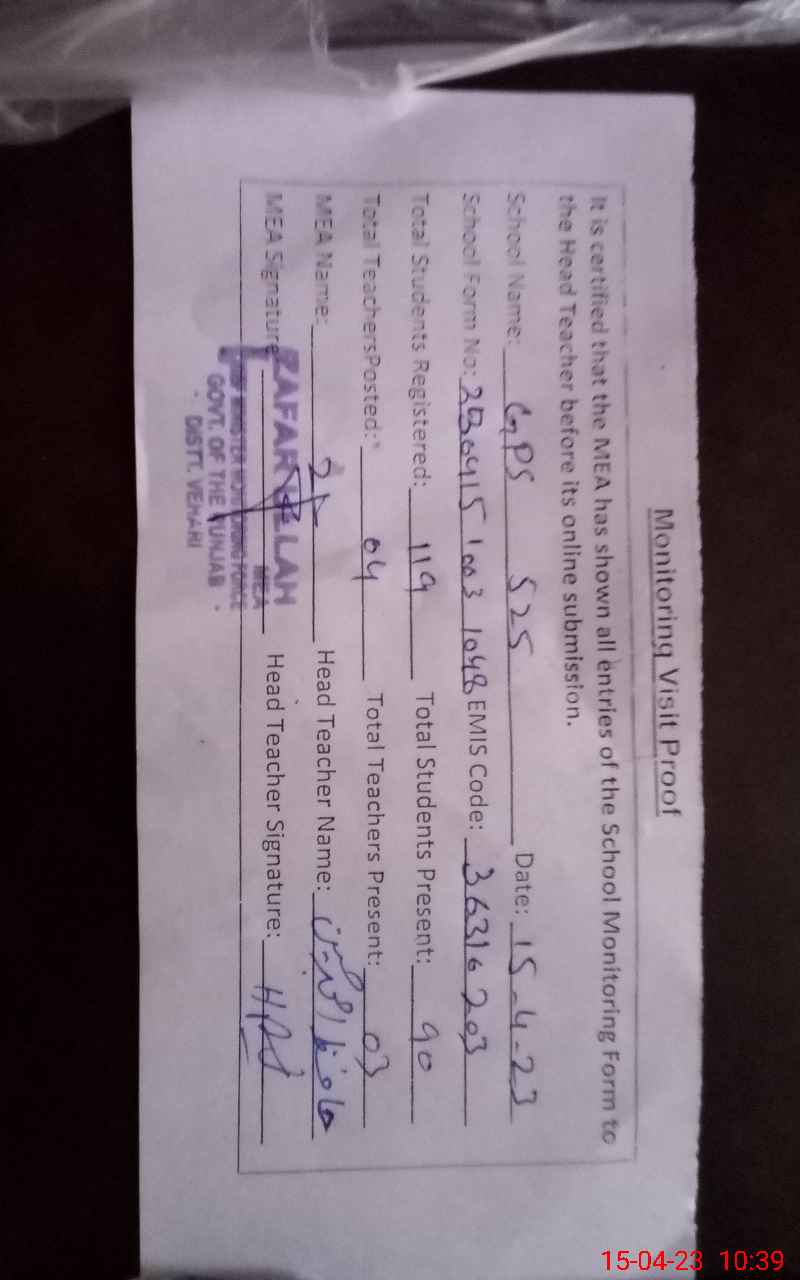 Monitoring Visit Proof
It is certified that the MEA has shown all entries of the School Monitoring Form to
the Head Teacher before its online submission.
School Name: GPS 525 Date: 15-4-23
School Form No: EMIS Code: 36316203
Total Students Registered: 119 Total Students Present: 90
Total TeachersPosted: 04 Total Teachers Present: 03
MEA Name: Head Teacher Name: حافظ
MEA Signature Head Teacher Signature:
ZAFAR ULLAH
MEA
MONITORING FORCE
GOVT. OF THE PUNJAB
DISTT. VEHARI
15-04-23 10:39